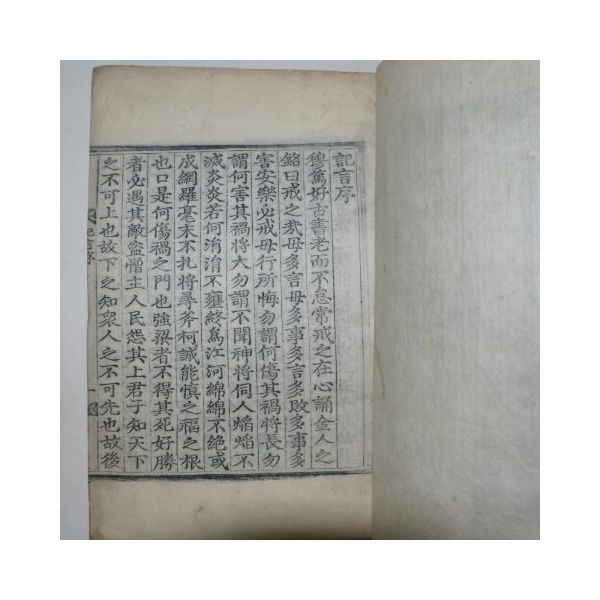 記言序
穆篤好古書老而不怠常戒之在心誦金人之
銘曰戒之哉毋多言毋多事多言多敗多事多
害安樂必戒毋行所悔勿謂何傷其禍將長勿
謂何害其禍將大勿謂不聞神將伺人焰焰不
滅炎炎若何涓涓不壅終爲江河綿綿不絶或
成網羅毫末不扎將尋斧柯誠能慎之福之根
也口是何傷禍之門也強梁者不得其死好勝
者必遇其敵盜憎主人民怨其上君子知天下
之不可上也故下之知衆人之不可先也故後
記言序
一